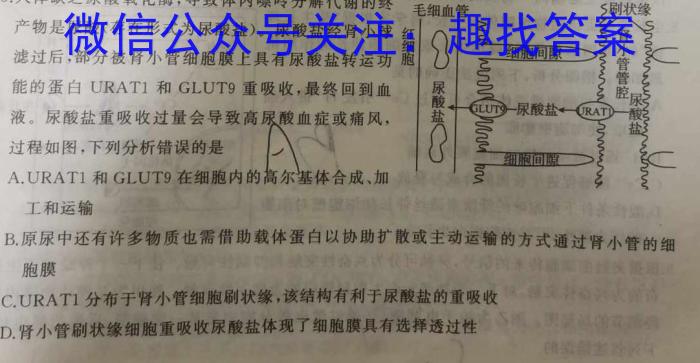 人体缺乏尿酸氧化酶,导致体内嘌呤分解代谢的终
产物是尿酸
尿酸盐经肾小球
滤过后,部分被肾小管细胞膜上具有尿酸盐转运功
能的蛋白 URAT1 和 GLUT9 重吸收,最终回到血
液。尿酸盐重吸收过量会导致高尿酸血症或痛风,
过程如图,下列分析错误的是
A.URAT1 和 GLUT9 在细胞内的高尔基体合成、加
工和运输
B.原尿中还有许多物质也需借助载体蛋白以协助扩散或主动运输的方式通过肾小管的细
胞膜
C.URAT1 分布于肾小管细胞刷状缘,该结构有利于尿酸盐的重吸收
D.肾小管刷状缘细胞重吸收尿酸盐体现了细胞膜具有选择透过性
毛细血管
刷状缘
细胞间隙
管腔
尿酸盐
GLUT9
尿酸盐
URAT1
尿酸盐
细胞间隙
微信公众号关注:趣找答案